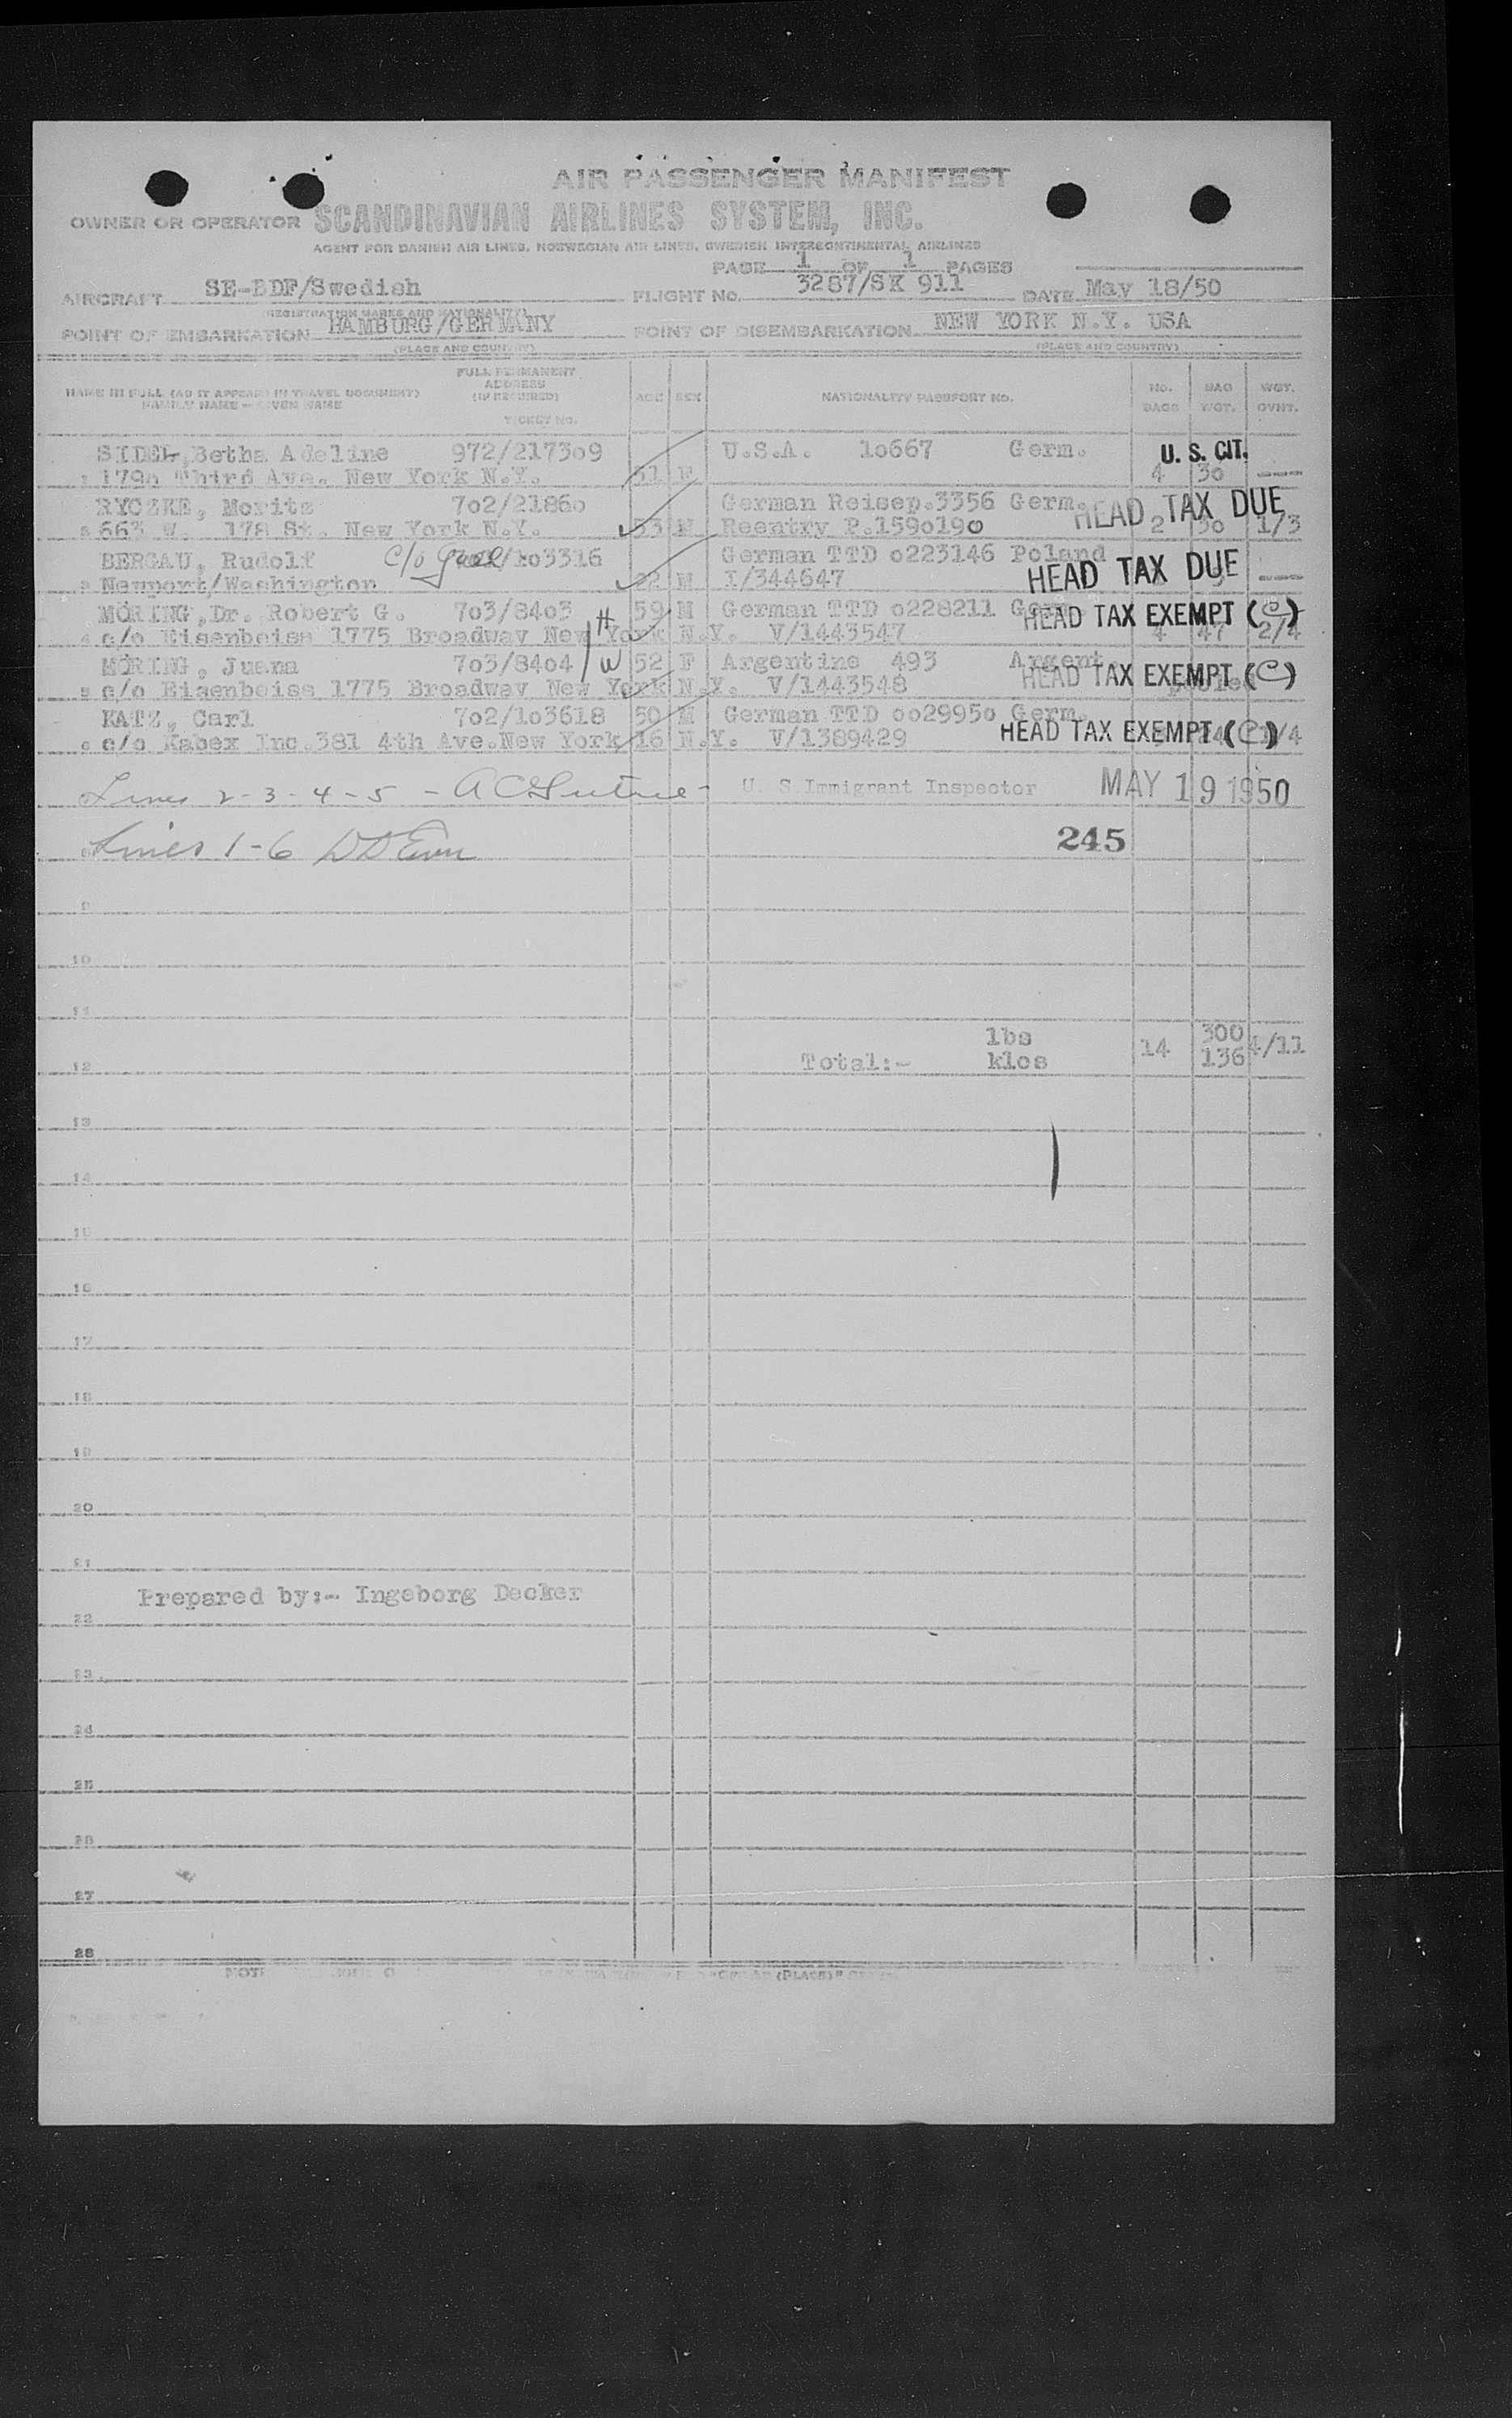 AIR PASSENGER MANIFEST
OWNER OR OPERATOR SCANDINAVIAN AIRLINES SYSTEM, INC.
AGENT FOR DANISH AIR LINES, NORWEGIAN AIR LINES, SWEDISH INTERCONTINENTAL AIRLINES
PAGE 1 OF 1 PAGES
AIRCRAFT SE-BDF/Swedish FLIGHT No. 3287/SK 911 DATE May 18/50
(REGISTRATION MARKS AND NATIONALITY)
POINT OF EMBARKATION HAMBURG/GERMANY POINT OF DISEMBARKATION NEW YORK N.Y. USA
(PLACE AND COUNTRY) (PLACE AND COUNTRY)
NAME IN FULL (AS IT APPEARS IN TRAVEL DOCUMENT) FAMILY NAME - GIVEN NAME FULL PERMANENT ADDRESS (IF REQUIRED) TICKET NO. AGE SEX NATIONALITY PASSPORT NO. NO. BAGS BAG WGT. WGT. OVHT.
SIDEL, Betha Adeline 972/2173o9 U.S.A. 1o667 Germ. U. S. CIT.
1 179o Third Ave. New York N.Y. 51 F 4 3o
RYCZKE, Moritz 7o2/2186o German Reisep.3356 Germ. HEAD TAX DUE
2 663 W. 178 St. New York N.Y. 53 M Reentry P.159o19o 2 3o 1/3
BERGAU, Rudolf c/o /1o3316 German TTD o223146 Poland
3 Newport/Washington 22 M I/344647 HEAD TAX DUE
MÖRING, Dr. Robert G. 7o3/84o3 H 59 M German TTD o228211 HEAD TAX EXEMPT (C)
4 c/o Eisenbeiss 1775 Broadway New York N.Y. V/1443547 4 47 2/4
MÖRING, Juana 7o3/84o4 W 52 F Argentine 493 Argent. HEAD TAX EXEMPT (C)
5 c/o Eisenbeiss 1775 Broadway New York N.Y. V/1443548
KATZ, Carl 7o2/1o3618 50 M German TTD oo2995o Germ.
6 c/o Kabex Inc.381 4th Ave.New York 16 N.Y. V/1389429 HEAD TAX EXEMPT (C) 1/4
Lines 2-3-4-5 - U. S. Immigrant Inspector MAY 19 1950
Lines 1-6 245
9
10
11
lbs 300
12 Total:- klos 14 136 4/11
13
14
15
16
17
18
19
20
21
Prepared by:- Ingeborg Decker
22
23
24
25
26
27
28